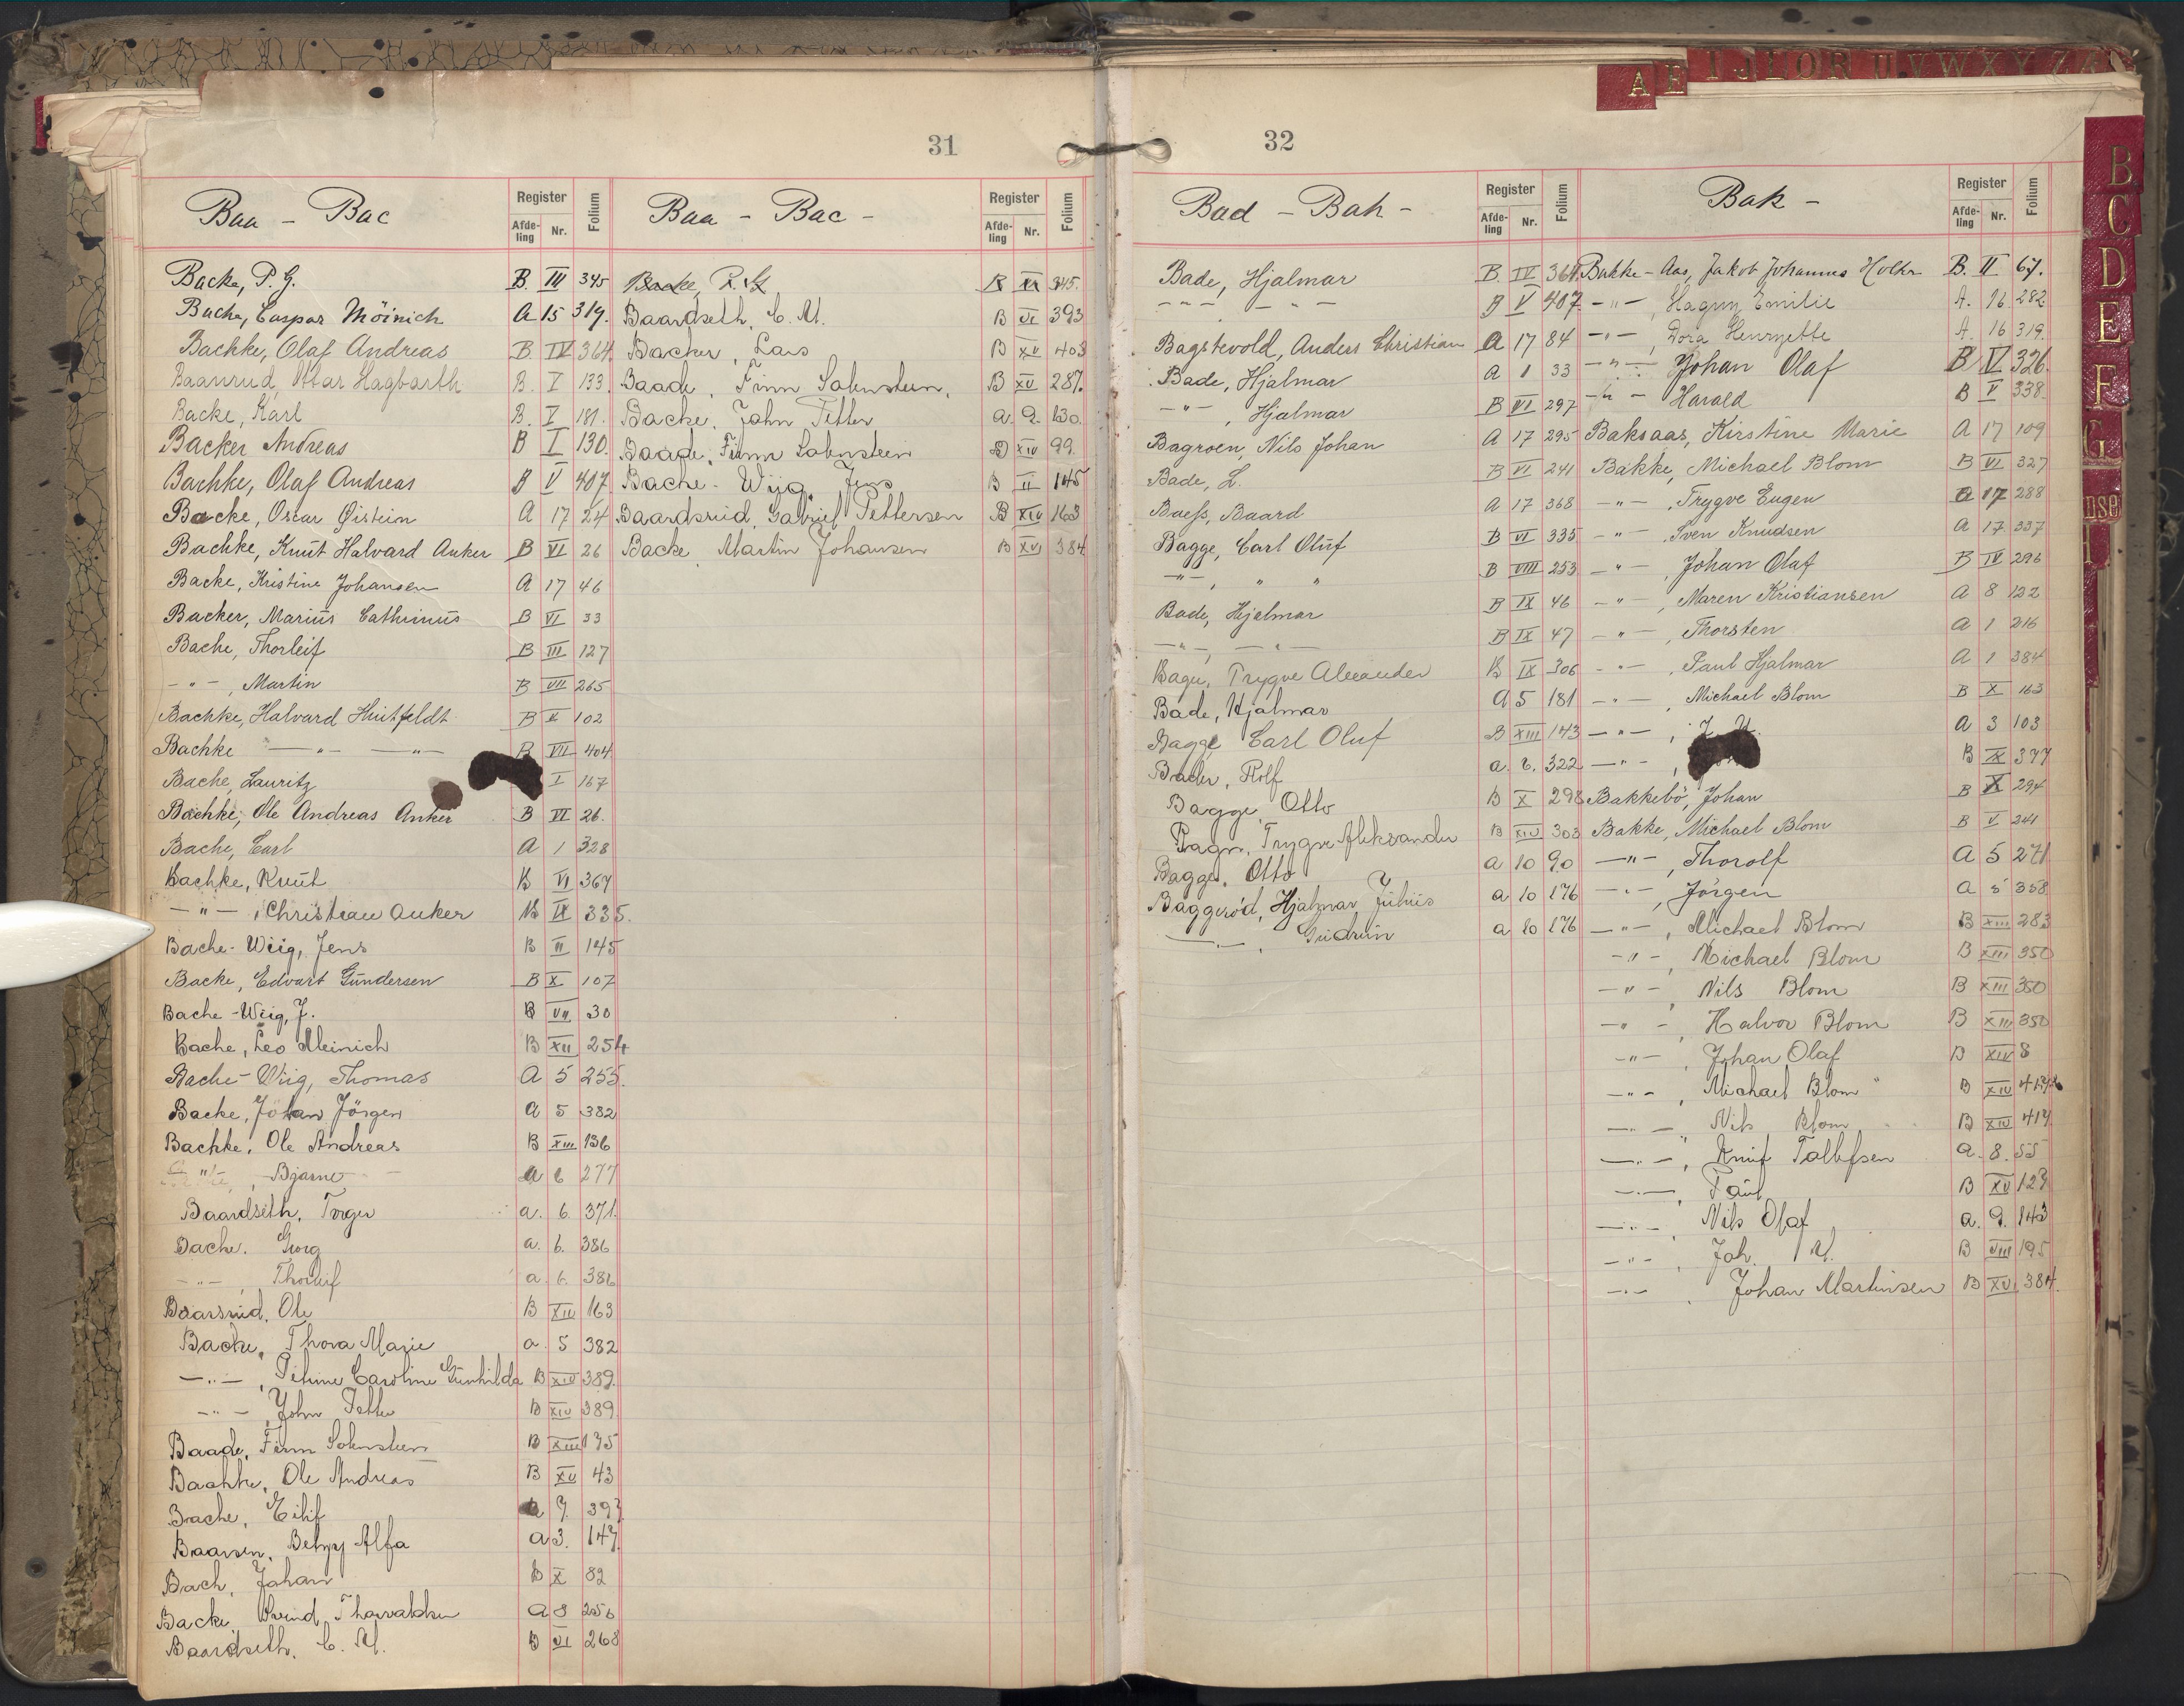 31
Baa - Bac
Register
Afde-ling
Nr.
Folium
Backe, P. G. B. III 345
Bache, Caspar Möinich A 15 319.
Bachke, Olaf Andreas B. IV 364
Baanrud, Ottar Hagbarth B. V 133
Backe, Karl B. V 181.
Backer Andreas B I 130.
Bachke, Olaf Andreas B V 407
Backe, Oscar Øistein A 17 24
Bachke, Knut Halvard Anker B VI 26
Backe, Kristine Johansen A 17 46
Backer, Marius Cathinus B VI 33
Bache, Thorleif B III 127
-"- , Martin B VII 265
Bachke, Halvard Huitfeldt B V 102
Bachke -"- -"- B VII 404
Bache, Lauritz I 167
Bachke, Ole Andreas Anker B VI 26.
Bache, Carl A 1 328
Bachke, Knut B VI 367
-"- , Christian Anker B IX 335.
Bache-Wiig, Jens B II 145
Backe, Edvart Gundersen B X 107
Bache-Wiig, J. B VII 30
Bache, Leo Meinich B XII 254
Bache-Wiig, Thomas A 5 255.
Backe, Johan Jörgen A 5 382
Bachke, Ole Andreas B XIII 136
-"- , Bjarne A 6 277
Baardseth, Torger a. 6. 371.
Bache. Georg a. 6. 386
-"- , Thorleif a. 6. 386
Baarsrud, Ole B XIV 163
Backe, Thora Marie a. 5 382
-"- , Caroline Gunhilda B XIV 389.
-"- , John Petter B XIV 389.
Baade, Finn Solensteen B XIII 175
Bachke, Ole Andreas B XV 43
Bache, Eilif a 7. 397
Baarsen, Betzy Alfa a 3. 147.
Bach, Johan B X 82
Backe, Øivind Thorvaldsen a 8 256
Baardseth, C. M. B VI 268
Baa - Bac -
Register
Afde-ling
Nr.
Folium
Backe, P. G. B III 345.
Baardseth, C. M. B VI 393
Backer, Lars B XV 403
Baade, Finn Solensteen, B XV 287.
Backe, John Petter a. 9. 130.
Baade, Finn Solensteen B XIV 99.
Bache-Wiig, Jens B II 145
Baardsrud, Gabriel Pettersen B XIV 163
Backe, Martin Johansen B XVI 384
32
Bad - Bah -
Register
Afde-ling
Nr.
Folium
Bade, Hjalmar B. IV 364.
-"- -"- B V 407.
Bagstevold, Anders Christian A 17 84
Bade, Hjalmar A 1 33
-"- , Hjalmar B VI 297
Bagroen, Nils Johan A 17 295
Bade, L. B VI 241
Baess, Baard A 17 368
Bagge, Carl Oluf B VI 335
-"- , " " B VIII 253
Bade, Hjalmar B IX 46
-"- , -"- B IX 47
Trygve Alexander B IX 306
Bade, Hjalmar A 5 181
Bagge, Carl Oluf B XIII 143
Rolf a. 6. 322
Bagge, Otto B X 298
Trygve Aleksander B XIV 303
Bagge, Otto a 10 90
Baggerød, Hjalmar Julius a 10 176
-"- , Gudrun a 10 176
Bak -
Register
Afde-ling
Nr.
Folium
Bakke-Aas, Jakob Johannes Holter B. II 67.
-"- , Hagny Emilie A. 16 282
-"- , Dora Henryette A. 16 319.
-"- Johan Olaf B V 326.
-"- Harald B V 338.
Baksaas, Kirstine Marie A 17 109
Bakke, Michael Blom B VI 327
-"- , Trygve Eugen A 17 288
-"- , Sven Knudsen A 17 337
-"- , Johan Olaf B IV 296
-"- , Maren Kristiansen A 8 122
-"- , Thorsten A 1 216
-"- , Paul Hjalmar A 1 384
-"- , Michael Blom B X 163
-"- , J. M. A 3 103
-"- , B IX 377
Bakkebö, Johan B X 294
Bakke, Michael Blom B V 241
-"- , Thorolf A 5 271
-"- , Jörgen A 5 358
-"- , Michael Blom B XIII 283
-"- , Michael Blom B XIII 350
-"- , Nils Blom B XIII 350
-"- , Halvor Blom B XIII 350
-"- , Johan Olaf B XIV 8
-"- , Michael Blom B XIV 417
-"- , Nils Blom B XIV 417
-"- , Knut Tallefsen a. 8. 55
-"- , Paul B XV 127
-"- , Nils Olaf a. 9. 143
-"- , Joh. M. B VIII 195
-"- , Johan Martinsen B XVI 384.
A E I J L O R U V W X Y Z
B C D E F G H